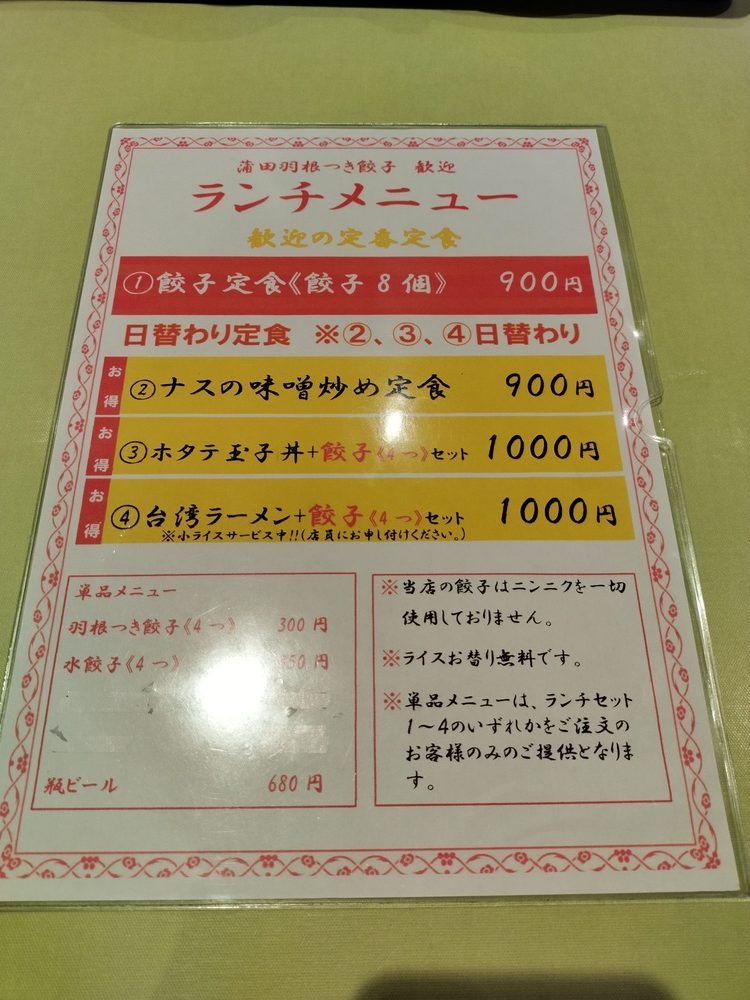 蒲田羽根つき餃子 歓迎
ランチメニュー
歓迎の定番定食
①餃子定食《餃子8個》 900円
日替わり定食 ※②、③、④日替わり
お得 ②ナスの味噌炒め定食 900円
お得 ③ホタテ玉子丼+餃子《4つ》セット 1000円
お得 ④台湾ラーメン+餃子《4つ》セット 1000円
※小ライスサービス中!!(店員にお申し付けください。)
単品メニュー
羽根つき餃子《4つ》 300円
水餃子《4つ》 350円
瓶ビール 680円
※当店の餃子はニンニクを一切
使用しておりません。
※ライスお替り無料です。
※単品メニューは、ランチセット
1〜4のいずれかをご注文の
お客様のみのご提供となりま
す。